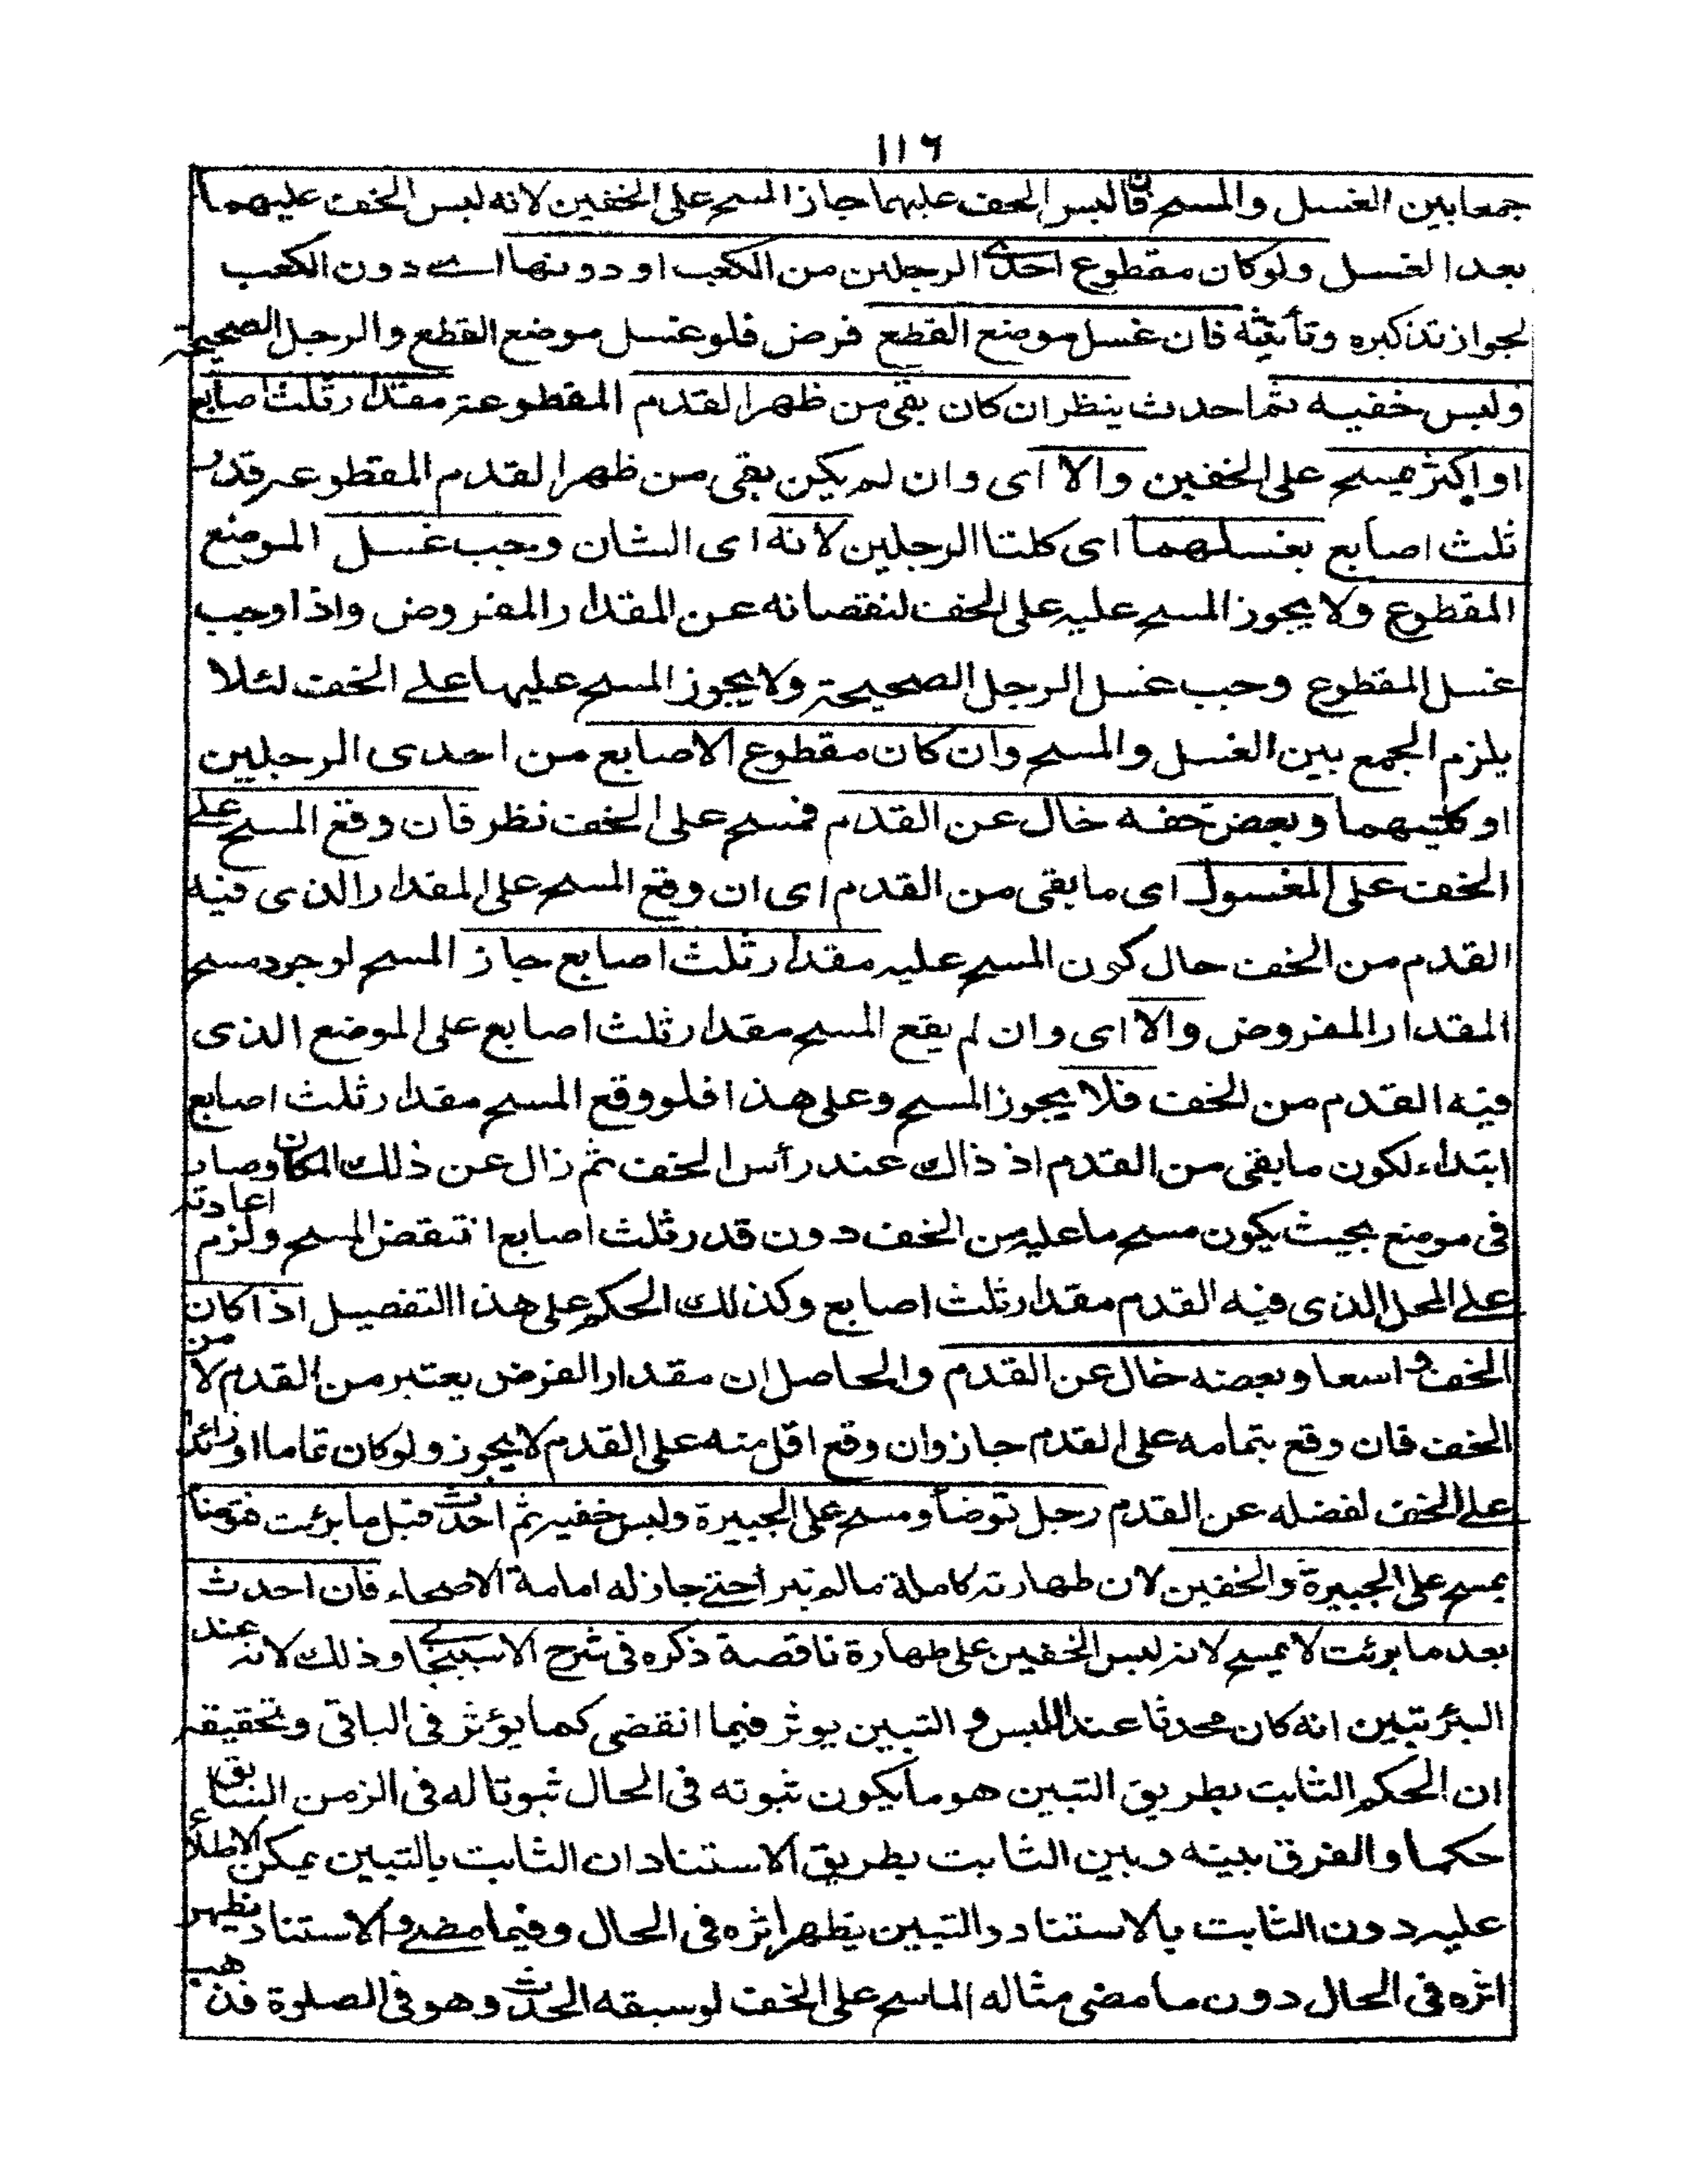 ١١٦
جمعا بين الغسل والمسح فان لبس الخف عليهما جاز المسح على الخفين لانه لبس الخف عليهما
بعد الغسل ولو كان مقطوع احدى الرجلين من الكعب او دونها اى دون الكعب
لجواز تذكيره وتأنيثه فان غسل موضع القطع فرض فلو غسل موضع القطع والرجل الصحيحة
ولبس خفيه ثم احدث ينظر ان كان بقى من ظهر القدم المقطوعة مقدار ثلث اصابع
او اكثر يمسح على الخفين والا اى وان لم يكن بقى من ظهر القدم المقطوعة قدر
ثلث اصابع يغسلهما اى كلتا الرجلين لانه اى الشان وجب غسل الموضع
المقطوع ولا يجوز المسح عليه على الخف لنقصانه عن المقدار المفروض واذا وجب
غسل المقطوع وجب غسل الرجل الصحيحة ولا يجوز المسح عليها على الخف لئلا
يلزم الجمع بين الغسل والمسح وان كان مقطوع الاصابع من احدى الرجلين
او كلتيهما وبعض خفه خال عن القدم فمسح على الخف نظر فان وقع المسح على
الخف على المغسول اى ما بقى من القدم اى ان وقع المسح على المقدار الذى فيه
القدم من الخف حال كون المسح عليه مقدار ثلث اصابع جاز المسح لوجود مسح
المقدار المفروض والا اى وان لم يقع المسح مقدار ثلث اصابع على الموضع الذى
فيه القدم من الخف فلا يجوز المسح وعلى هذا فلو وقع المسح مقدار ثلث اصابع
ابتداء لكون ما بقى من القدم اذ ذاك عند رأس الخف ثم زال عن ذلك المكان وصار
فى موضع بحيث يكون مسح ما عليه من الخف دون قدر ثلث اصابع انتقض المسح ولزم اعادته
على المحل الذى فيه القدم مقدار ثلث اصابع وكذلك الحكم على هذا التفصيل اذا كان
الخف واسعا وبعضه خال عن القدم والحاصل ان مقدار الفرض يعتبر من القدم لا من
الخف فان وقع بتمامه على القدم جاز وان وقع اقل منه على القدم لا يجوز ولو كان تماما او زائدا
على الخف لفضله عن القدم رجل توضأ ومسح على الجبيرة ولبس خفيه ثم احدث قبل ما برئت فتوضأ
يمسح على الجبيرة والخفين لان طهارته كاملة ما لم تبرا حتى جاز له امامة الاصحاء فان احدث
بعد ما برئت لا يمسح لانه لبس الخفين على طهارة ناقصة ذكره فى شرح الاسبيجابى وذلك لانه عند
البرئ تبين انه كان محدثا عند اللبس و التبين يوثر فيما انقضى كما يؤثر فى الباقى وتحقيقه
ان الحكم الثابت بطريق التبين هو ما يكون ثبوته فى الحال ثبوتا له فى الزمن السابق
حكما والفرق بينه وبين الثابت بطريق الاستناد ان الثابت بالتبين يمكن الاطلاع
عليه دون الثابت بالاستناد والتبين يظهر اثره فى الحال وفيما مضى والاستناد يظهر
اثره فى الحال دون ما مضى مثاله الماسح على الخف لو سبقه الحدث وهو فى الصلوة فذهب